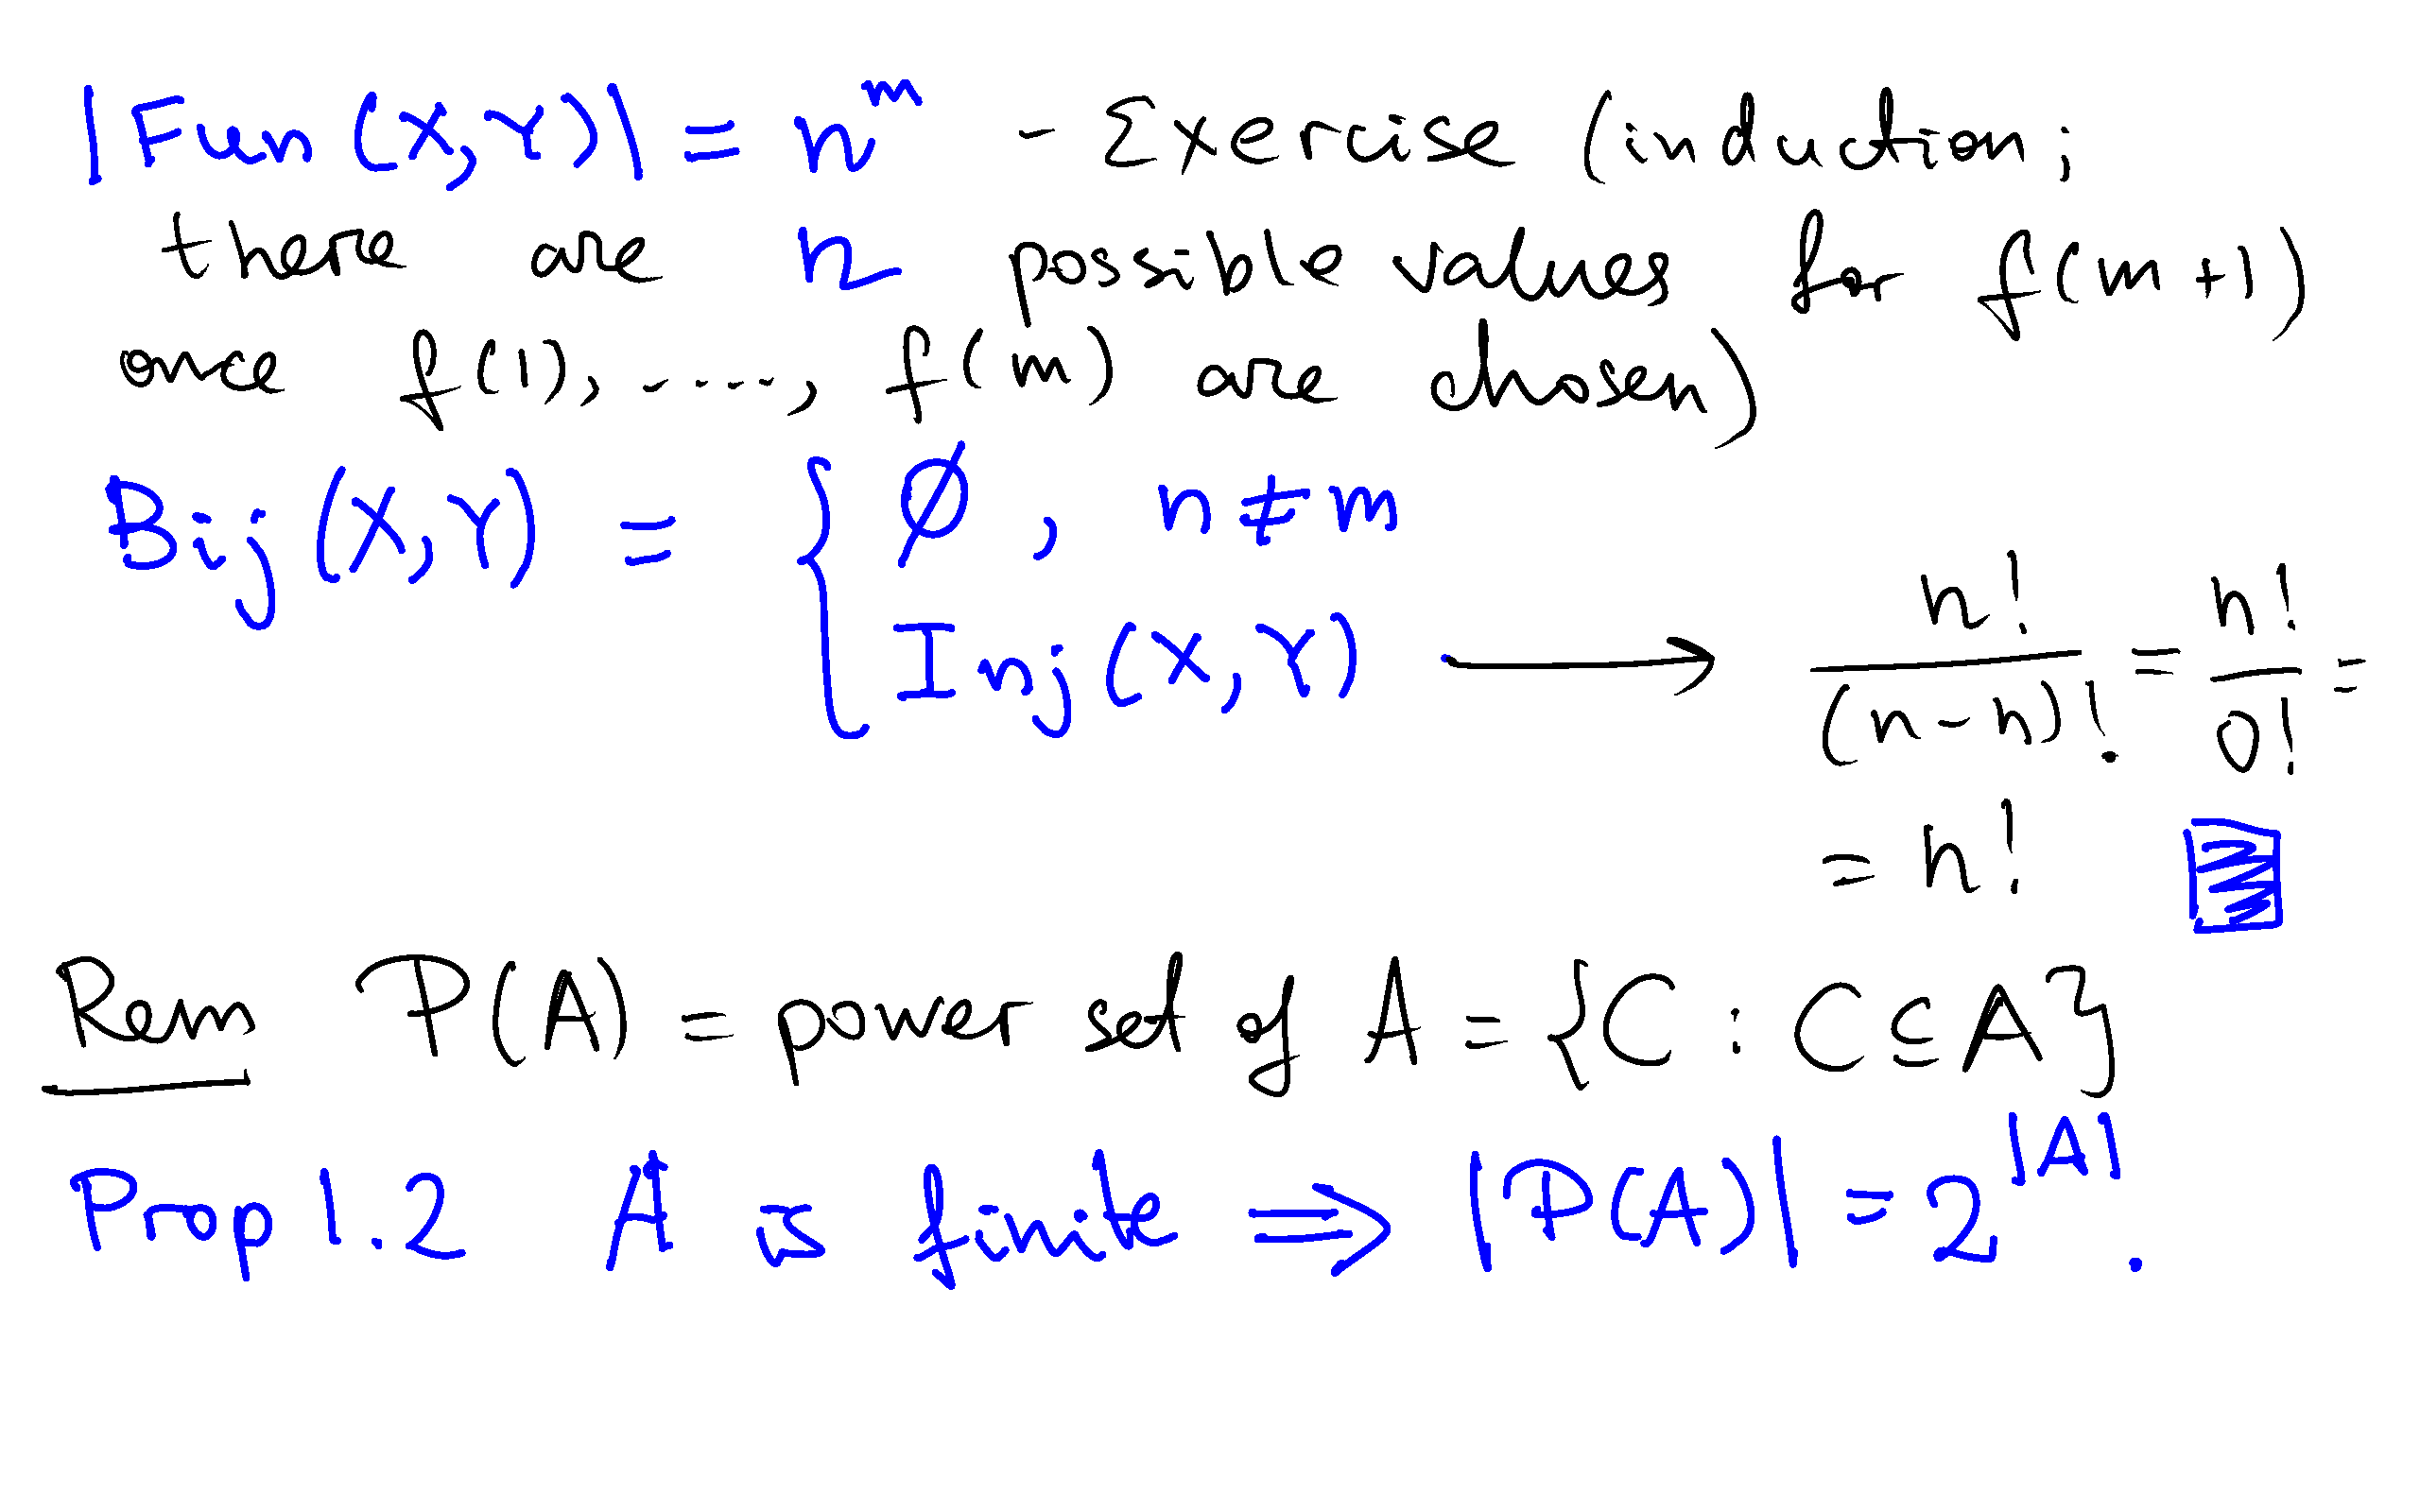 |Fun (X,Y)| = n^m - Exercise (induction;
there are n possible values for f(m+1)
once f(1), ....., f(m) are chosen)
Bij (X,Y) = { ∅ , n ≠ m
Inj (X,Y) ⟶ n!/(n-n)! = n!/0! =
= n!
Rem P(A) = power set of A = {C : C ⊆ A}
Prop 1.2 A is finite ⇒ |P(A)| = 2^|A|.